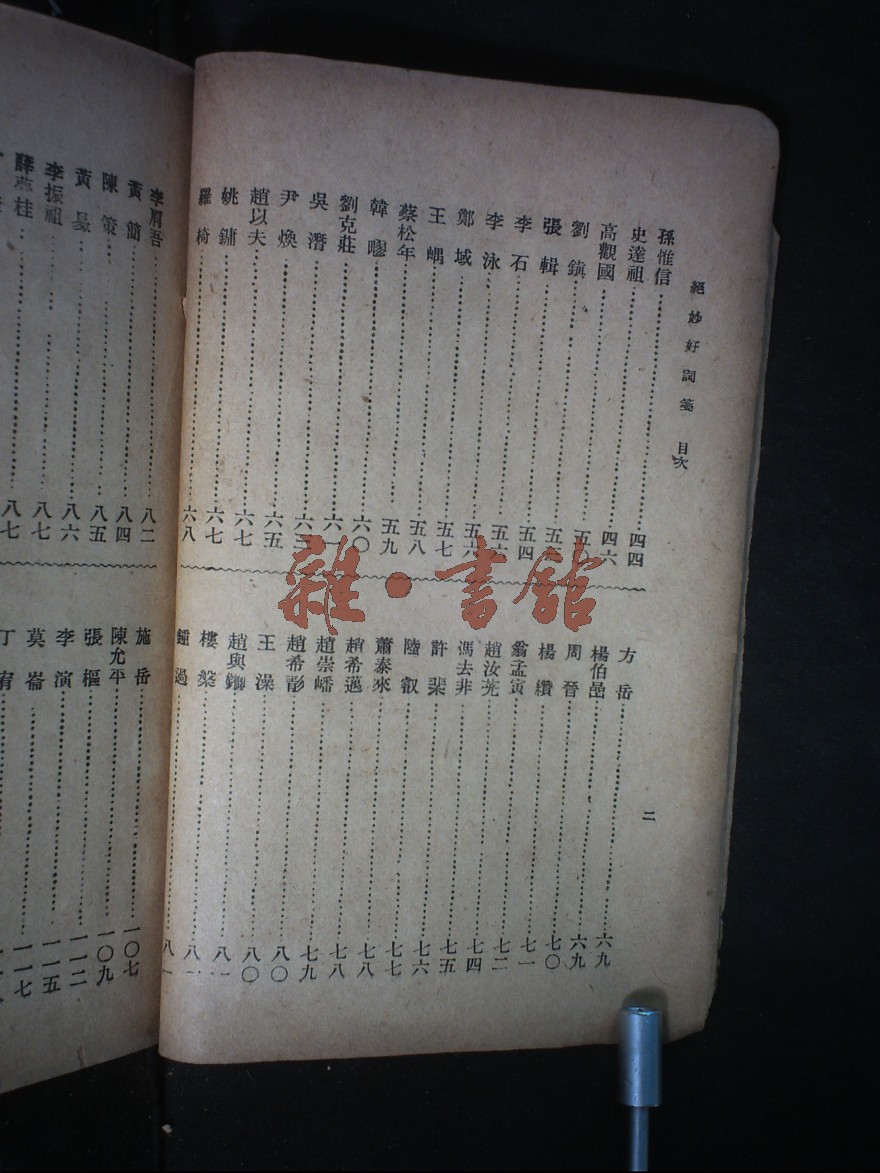 絕妙好詞箋 目次
孫惟信 四四
史達祖 四四
高觀國 四六
劉鎮
張輯
李石 五四
李泳
鄭域
王嵎 五八
蔡松年 五九
韓疁 六〇
劉克莊
吳潛
尹煥 六五
趙以夫 六七
姚鏞 六七
羅椅 六八
方岳 六九
楊伯嵒 六九
周晉 七〇
楊纘 七一
翁孟寅 七二
趙汝茪 七四
馮去非 七五
許棐 七六
陸叡 七七
蕭泰來 七八
趙希邁 七八
趙崇嶓 七九
趙希彭 八〇
王澡 八〇
趙與鐊
樓槃
鍾過
二
李肩吾 八二
黃簡 八四
陳策 八五
黃昇 八六
李振祖 八七
薛夢桂 八七
施岳 一〇七
陳允平 一〇九
張樞 一一二
李演 一一五
莫崙 一一七
丁宥
雜·書館